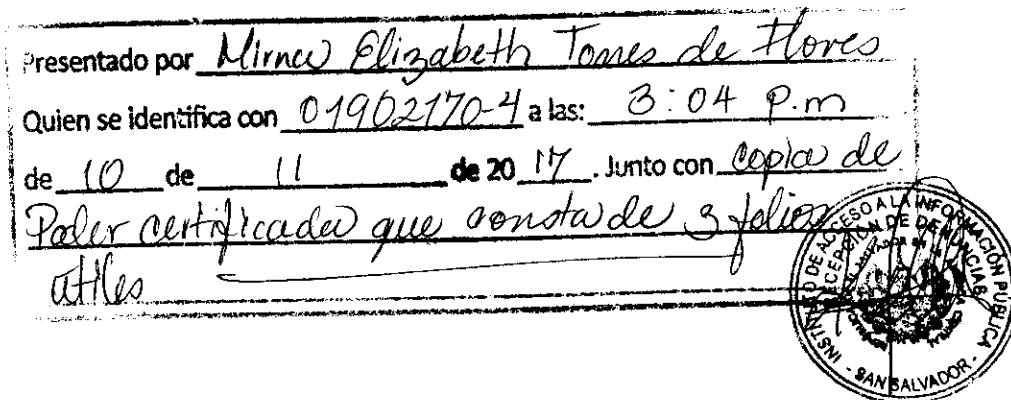 Presentado por Mirna Elizabeth Torres de Flores
Quien se identifica con 01902170-4 a las: 3:04 p.m
de 10 de 11 de 20 17. Junto con copia de
Poder certificada que consta de 3 folios
utiles
INSTITUTO DE ACCESO A LA INFORMACIÓN PÚBLICA
RECEPCIÓN DE DENUNCIAS
SAN SALVADOR